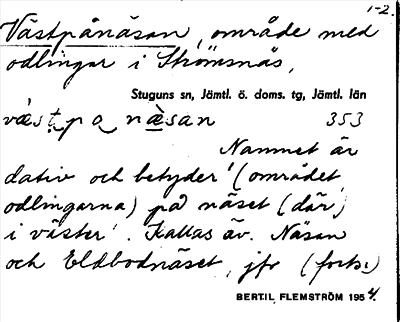 1-2.
Västpånäsan, område med
odlingar i Strömsnäs,
Stuguns sn, Jämtl. ö. doms. tg, Jämtl. län
väst pa nä̀san 353
Namnet är
dativ och betyder '(området,
odlingarna) på näset (där)
i väster'. Kallas äv. Näsan
och Eldbodnäset, jfr (forts.)
BERTIL FLEMSTRÖM 1954.